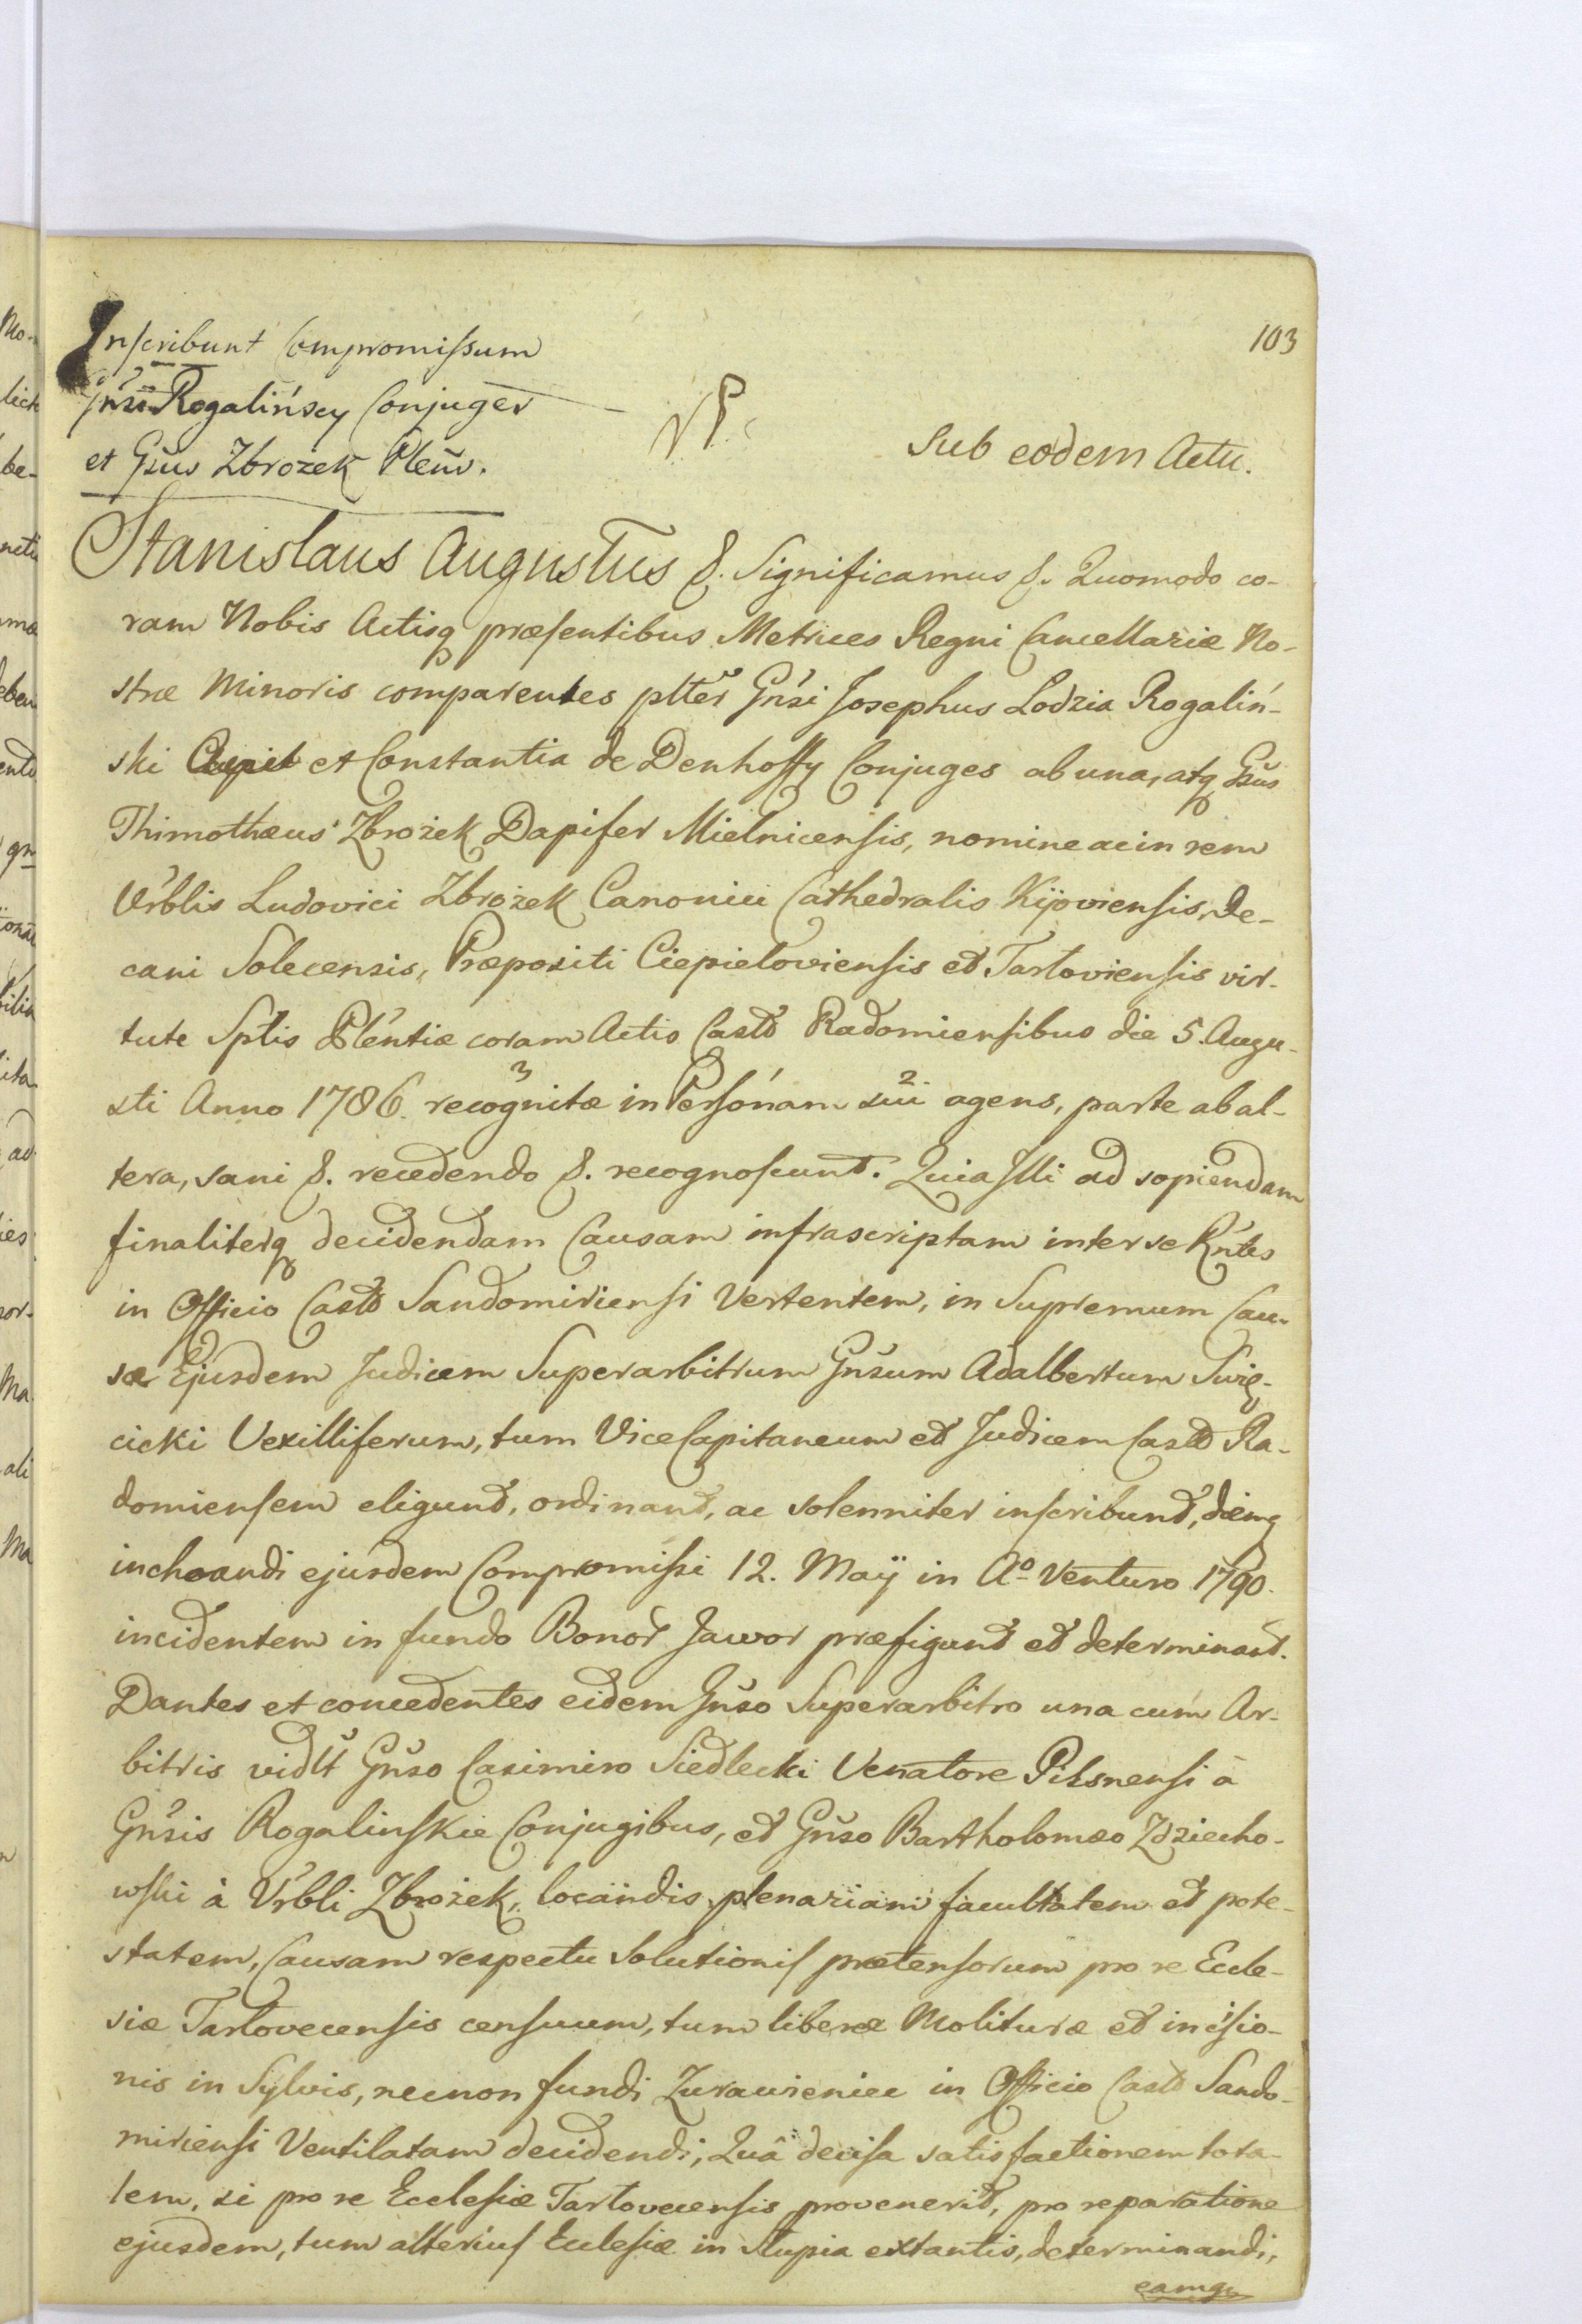 103
Inscribunt Compromissum
Gnsi Rogalińscy Conjuges
et Gsus Zbrozek Plenv.
Sub eodem Actu.
Stanislaus Augustus &. Significamus &. Quomodo co-
ram Nobis Actisq præsentibus Metrices Regni Cancellariæ No-
stræ Minoris comparentes plter Gnsi Josephus Lodzia Rogaliń-
ski et Constantia de Denhoffy Conjuges ab una, atq Gsus
Thimothæus Zbrożek Dapifer Mielnicensis, nomine ac in rem
Vrblis Ludovici Zbrożek Canonici Cathedralis Kijoviensis, De-
cani Solecensis, Præpositi Ciepieloviensis et Tarloviensis vir-
tute Sptis Plentiæ coram Actis Castr Radomiensibus die 5. Augu-
sti Anno 1786. recognitæ in Personam sui agens, parte ab al-
tera, sani &. recedendo &. recognoscunt. Quia Illi ad sopiendam
finaliterq decidendam Causam infrascriptam inter se Rntes
in Officio Castr Sandomiriensi Vertentem, in Supremum Cau-
sæ Ejusdem Judicem Superarbitrum Gnsum Adalbertum Swię-
cicki Vexilliferum, tum ViceCapitaneum et Judicem Castr Ra-
domiensem eligunt, ordinant, ac solenniter inscribunt, diemq
inchoandi ejusdem Compromissi 12. Maÿ in Ao Venturo 1790.
incidentem in fundo Bonor Jawor præfigunt et determinant.
Dantes et concedentes eidem Gnso Superarbitro una cum Ar-
bitris vidlt Gnso Casimiro Siedlecki Venatore Pilsnensi à
Gnsis Rogalinskie Conjugibus, et Gnso Bartholomæo Zdziecho-
wski à Vrbli Zbrożek, locandis plenariam facultatem et pote-
statem, Causam respectu Solutionis prætensorum pro re Eccle-
siæ Tarlovecensis censuum, tum liberæ Molituræ et incisio-
nis in Sylvis, necnon fundi Zurawieniec in Officio Castr Sando-
miriensi Ventilatam decidendi, Quâ decisa satisfactionem tota-
lem, si pro re Ecclesiæ Tarlovecensis provenerit, pro reparatione
ejusdem, tum alterius Ecclesiæ in Słupia extantis, determinandi,
eamq